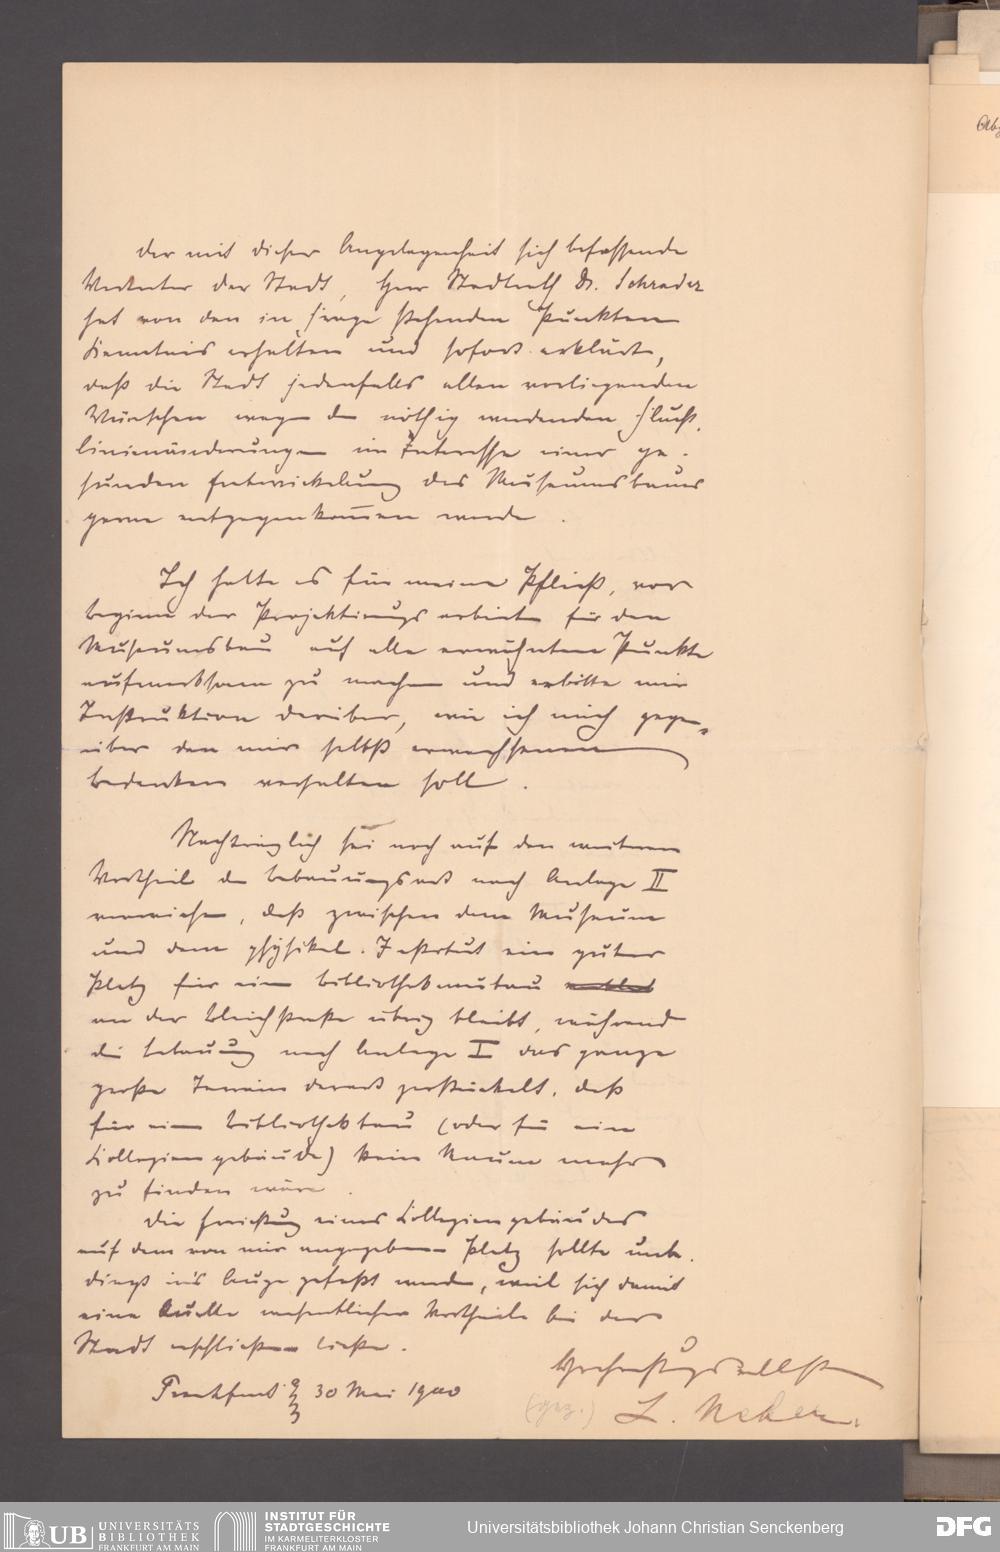 der mit dieser Angelegenheit sich befassende
Vertreter der Stadt, Herr Stadtrath Dr. Schrader
hat von den in Frage stehenden Punkten
Kenntnis erhalten und sofort erklärt,
daß die Stadt jedenfalls allen vorliegenden
Wünschen wegen der nöthig werdenden Flucht-
linienänderungen im Interesse einer ge-
sunden Entwickelung des Museumsbaues
gerne entgegenkommen werde.
Ich halte es für meine Pflicht, vor
Beginn der Projektierungsarbeiten für den
Museumsbau auf alle erwähnten Punkte
aufmerksam zu machen und erbitte mir
Instruktion darüber, wie ich mich gegen-
über den mir selbst erwachsenen
Bedenken verhalten soll.
Nachträglich sei noch auf den weiteren
Vortheil der Bebauungsart nach Anlage II
verwiesen, daß zwischen dem Museum
und dem physikal. Institut ein guter
Platz für einen Bibliothekneubau
an der Bleichstraße übrig bleibt, während
die Bebauung nach Anlage I das ganze
große Terrain derart zerstückelt, daß
für einen Bibliothekbau (oder für ein
Kollegiengebäude) kein Raum mehr
zu finden wäre.
Die Errichtung eines Kollegiengebäudes
auf dem von mir angegebenen Platz sollte unbe-
dingt in's Auge gefaßt werden, weil sich damit
eine Quelle wesentlicher Vortheile bei der
Stadt erschließen ließe.
Hochachtungsvollst
Frankfurt a/M 30 Mai 1900
(gez.) L. Neher.
UB UNIVERSITÄTS
BIBLIOTHEK
FRANKFURT AM MAIN
INSTITUT FÜR
STADTGESCHICHTE
IM KARMELITERKLOSTER
FRANKFURT AM MAIN
Universitätsbibliothek Johann Christian Senckenberg
DFG